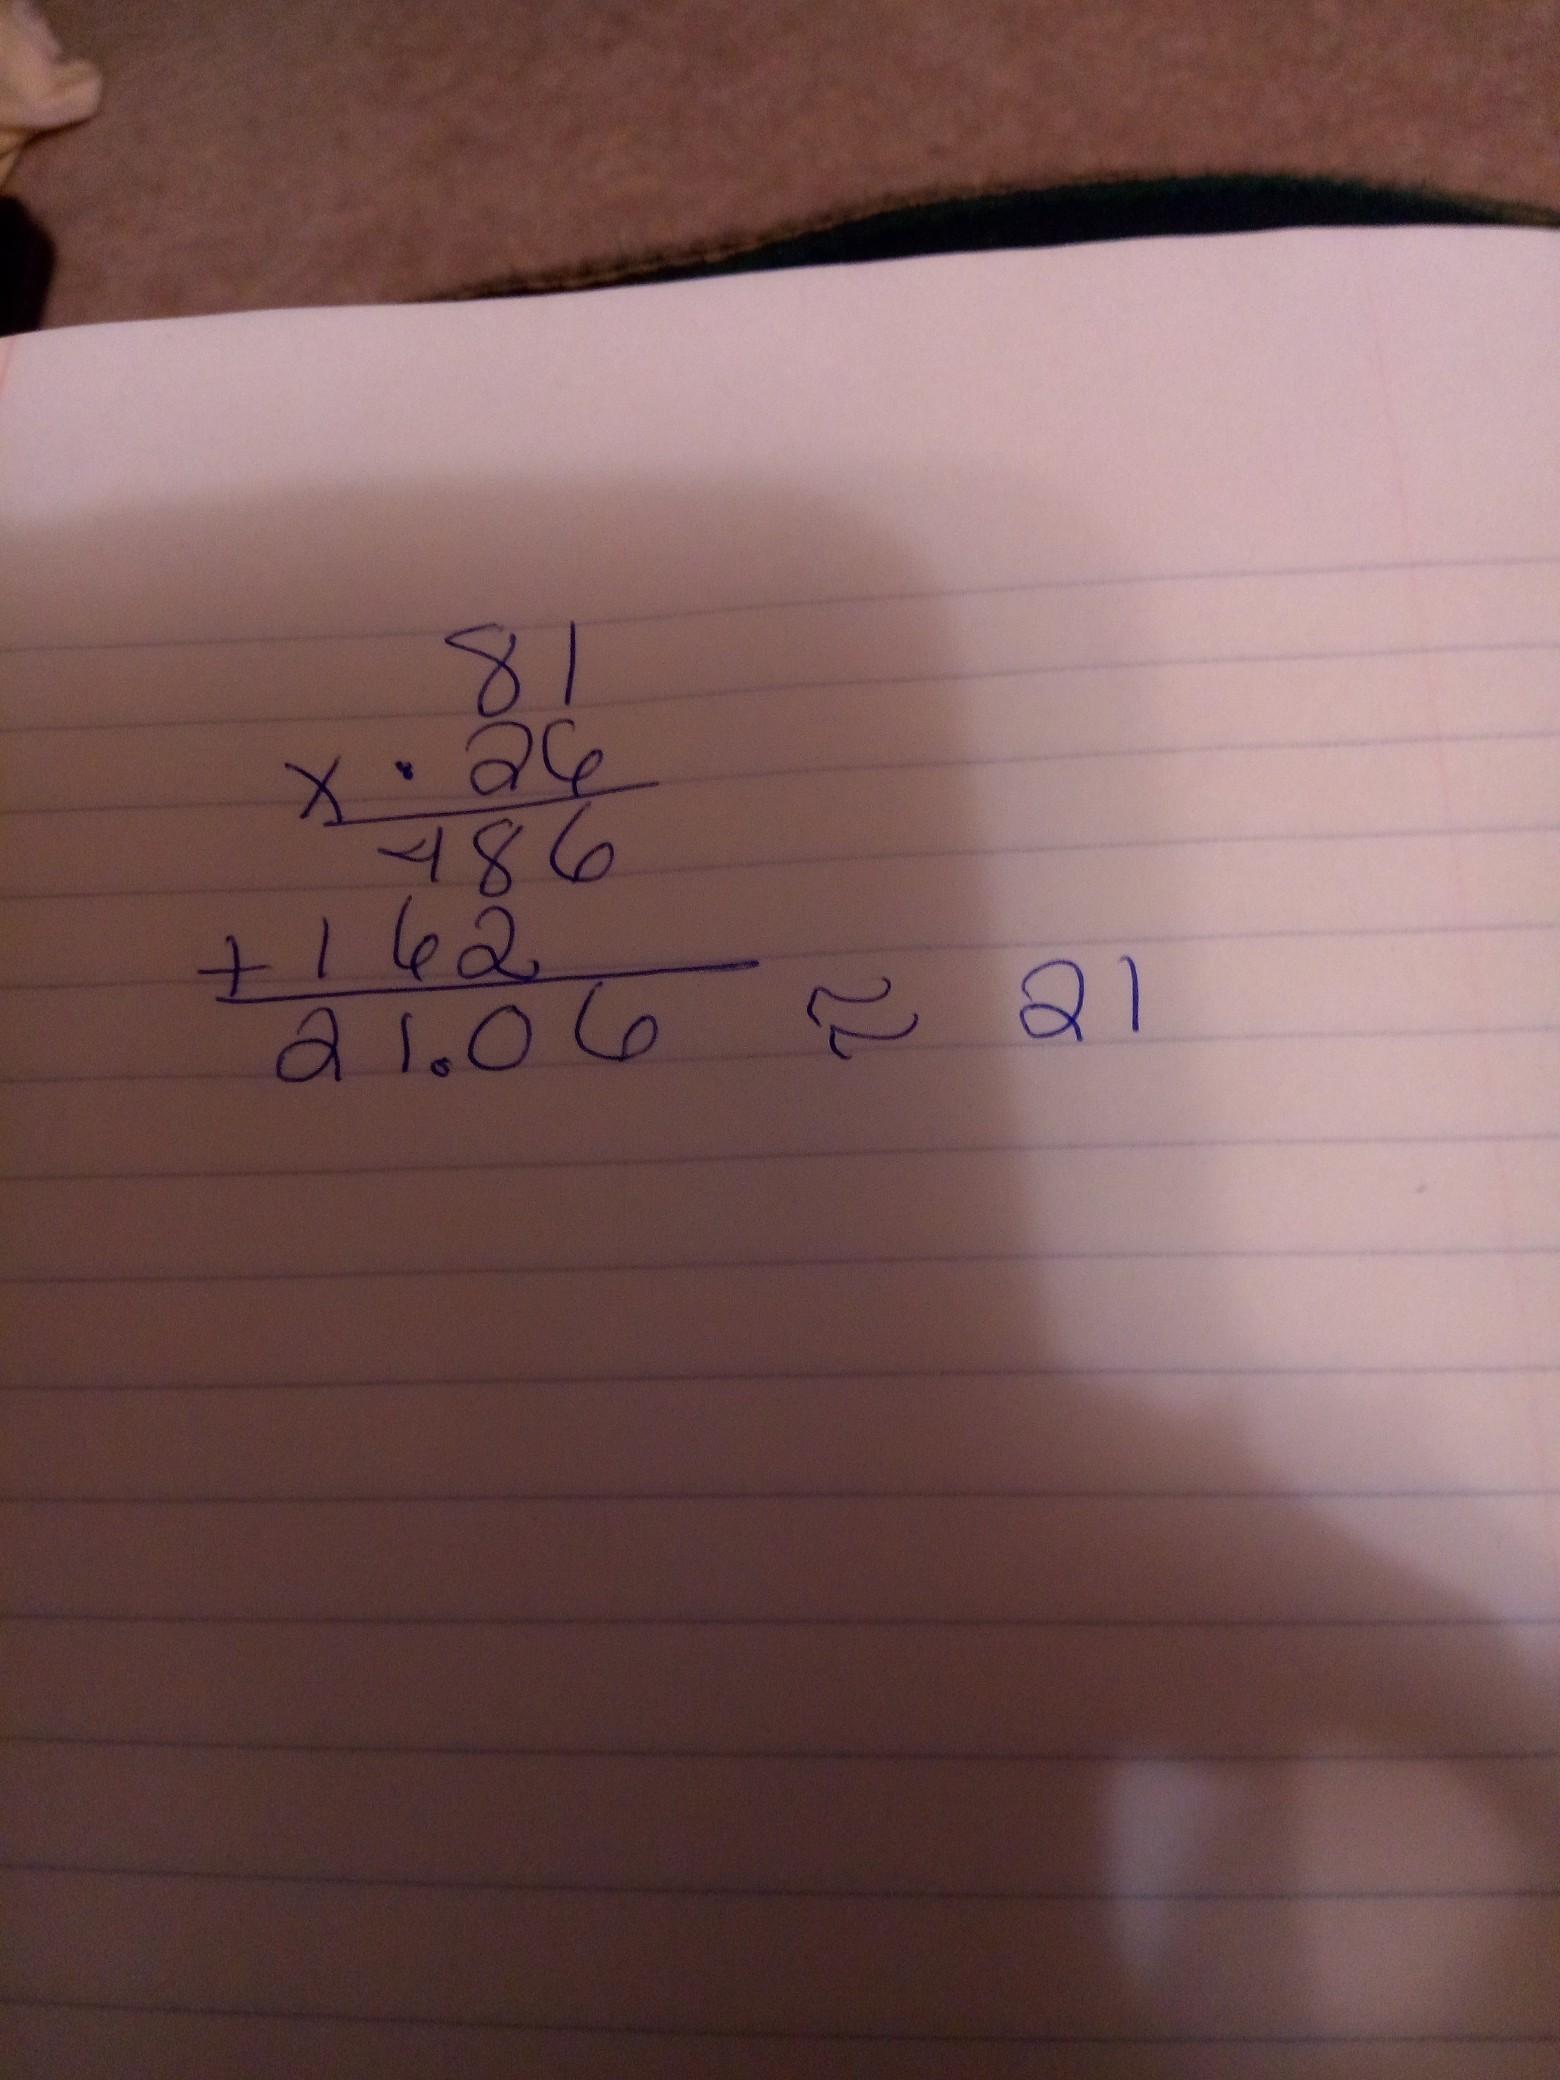 81
x .26
486
+162
21.06 ≈ 21